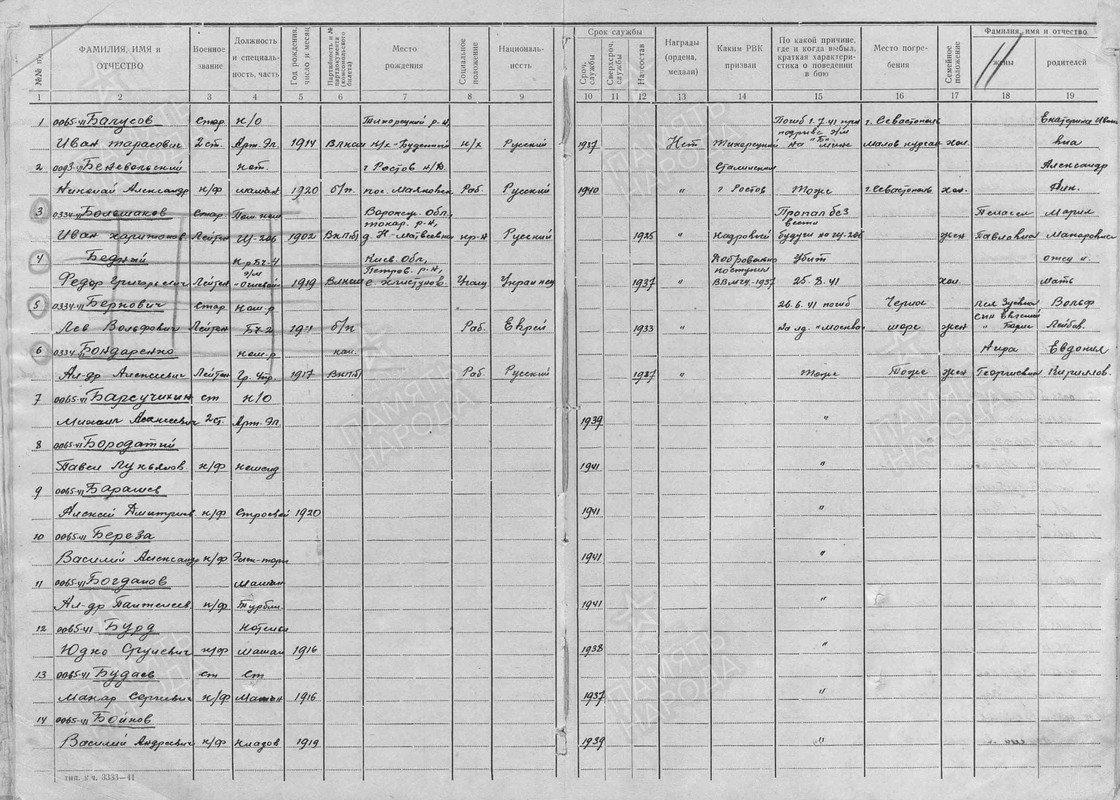 Срок службы
Фамилия, имя и отчество
№№ пп.
ФАМИЛИЯ, ИМЯ и ОТЧЕСТВО
Военное звание
Должность и специальность, часть
Год рождения, число и месяц
Партийность и № партдокумента (комсомольского билета)
Место рождения
Социальное положение
Националь-ность
Сроч. службы
Сверхсроч. службы
Нач. состав
Награды (ордена, медали)
Каким РВК призван
По какой причине, где и когда выбыл, краткая характеристика о поведении в бою
Место погребения
Семейное положение
жены
родителей
1 2 3 4 5 6 7 8 9 10 11 12 13 14 15 16 17 18 19
1 0065-41 Балусов Стар. к/о Тихорецкий р-н, Погиб 1.7.41 при г. Севастополь Екатерина
Иван Тарасович 2 ст. Арт. Эл. 1914 к/х Буденный к/х Русский 1937 Нет Тихорецкий на мине Малов курган хол.
2 Беневольский г Ростов н/Д. Сталинский Александр
Николай Александр к/ф машин 1920 б/п пос. Маяковск Раб. Русский 1940 " г Ростов Тоже г. Севастополь хол.
3 0334-41 Большаков Стар. Пом. ком Воронеж. обл., Пропал без вести Пелагея Мария
Иван Харитонов Лейтен Щ-206 1902 ВКПб д. Н-Матвеевка кр-н Русский 1925 " Кадровый будучи на Щ-206 жен Павловна Макаровна
4 Бедный к-р БЧ-4 Киев. обл., Добровольно Убит отец и
Федор Григорьевич Лейтен 1919 Петров. р-н, Учащ Украинец 1937 " поступил ВВМУ-1937 25.8.41 хол. мать
5 0334-41 Бернович Стар. ком-р 26.6.41 погиб Черное Вольф
Лев Вольфович Лейтен БЧ-2 1911 б/п Раб. Еврей 1933 " на лд. "Москва" море жен " Борис Лейбов.
6 0334 Бондаренко ком-р кан. Евдоким
Ал-др Алексеевич Лейтен Гр. Упр. 1917 ВКПб Раб. Русский 1937 " Тоже Тоже жен Георгиевна Кириллов.
7 0065-41 Барсучихин ст к/о
Михаил 2 ст. Арт. Эл. 1939 "
8 0065-41 Бородатый
Павел Лукьянов к/ф Коменд 1941 "
9 0065-41 Барашев
Алексей Дмитриев к/ф Строевой 1920 1941 "
10 0065-41 Береза
Василий Александр к/ф 1941 "
11 0065-41 Богданов Машин
Ал-др Пантелеев. к/ф Турбин 1941 "
12 0065-41 Бурд Котельн
Юдко к/ф Машин 1916 1938 "
13 0065-41 Будаев ст Ст
Макар Сергиевич к/ф Машин 1916 1937 "
14 0065-41 Бойков
Василий Андреевич к/ф Кладов 1919 1939 "
3333—41
ПАМЯТЬ НАРОДА